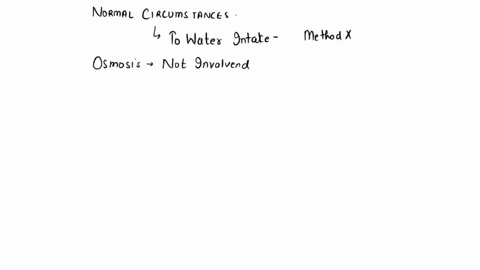 NORMAL CIRCUMSTANCES.
↳ To Water Intake - Method X
Osmosis → Not Involvend